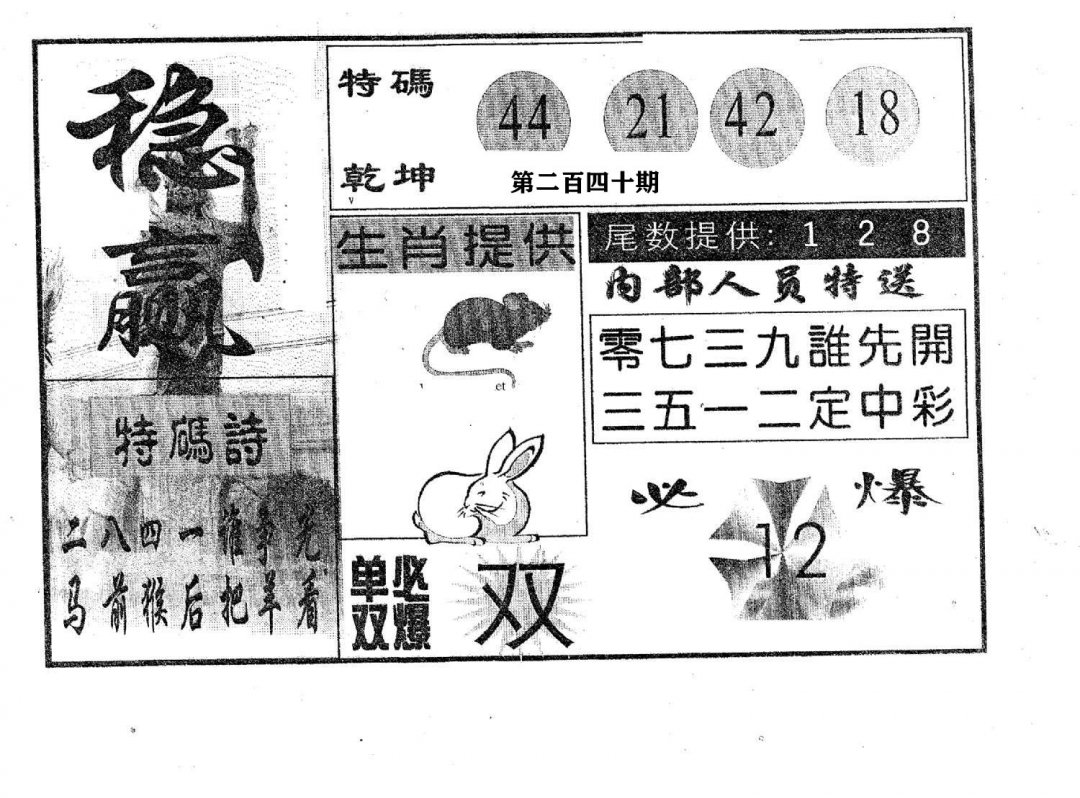 稳赢
特碼
乾坤
44 21 42 18
第二百四十期
生肖提供
尾数提供: 1 2 8
内部人员特送
零七三九誰先開
三五一二定中彩
特碼詩
二八四一誰争先
马前猴后把羊看
必爆
12
单双必爆
双